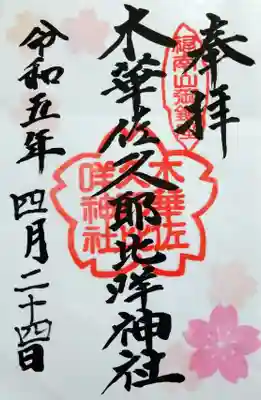 奉拝
木華佐久耶比咩神社
令和五年 四月二十四日
木華佐
久耶比
咩神社